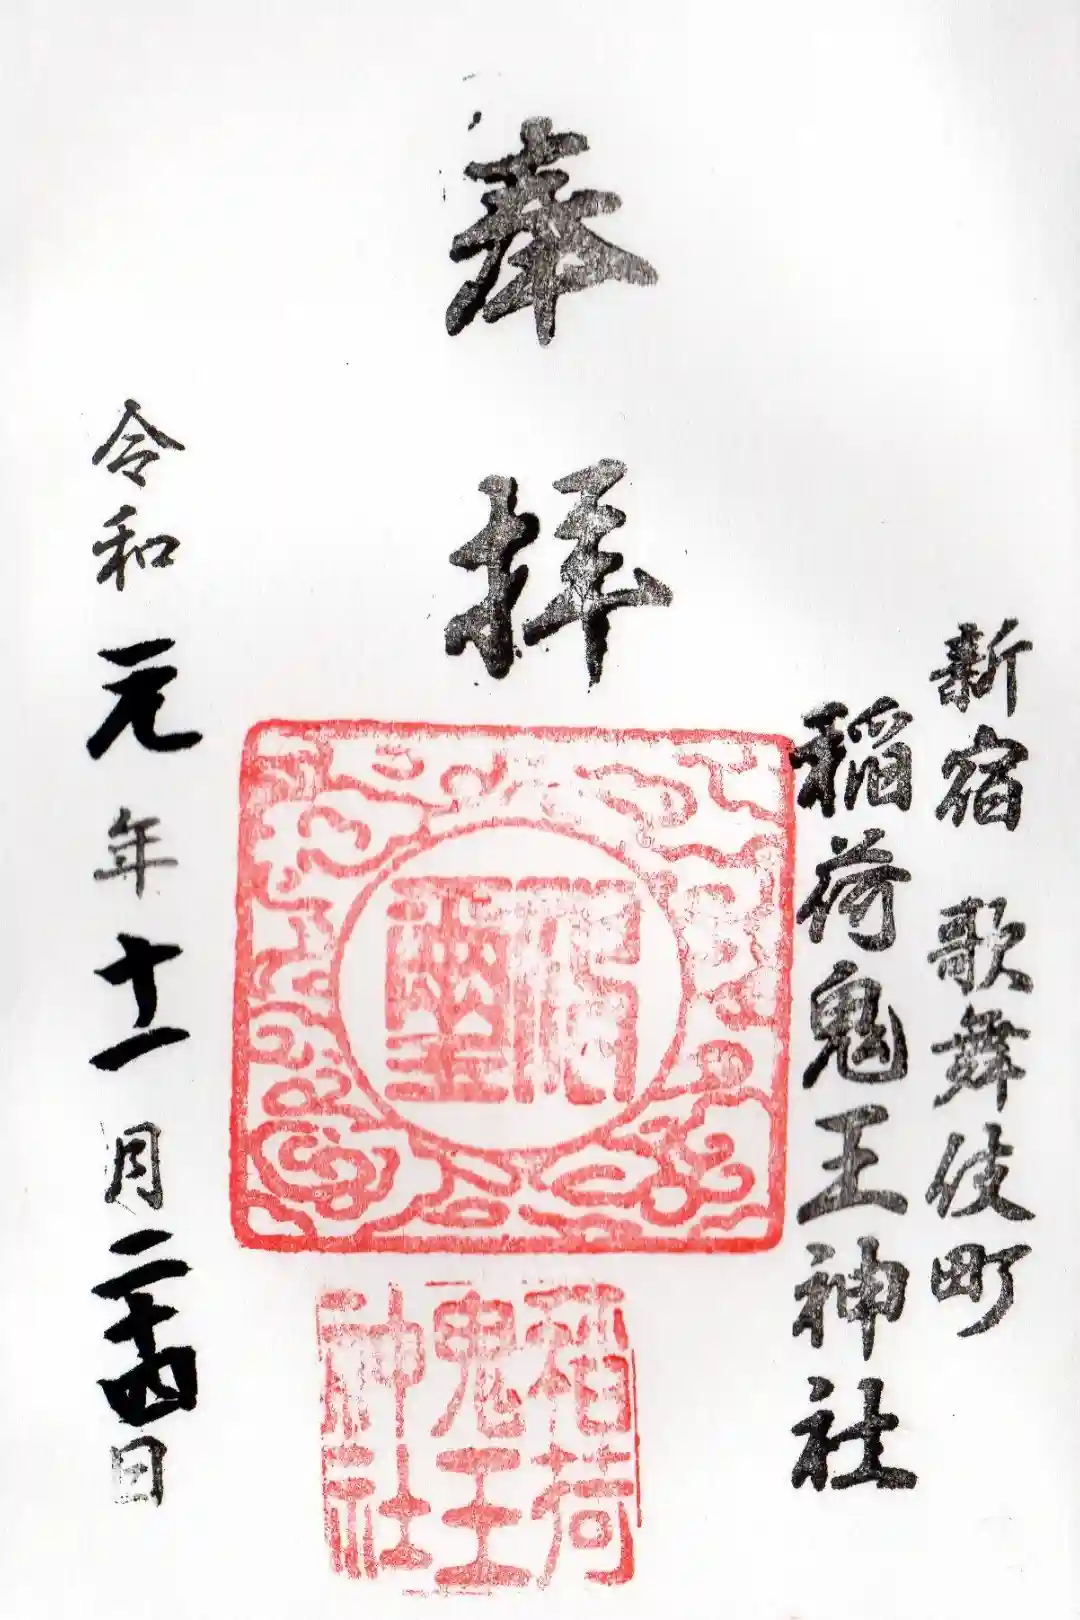 新宿 歌舞伎町
稲荷鬼王神社
奉拝
稲荷
鬼王
神社
令和元年十一月二十四日